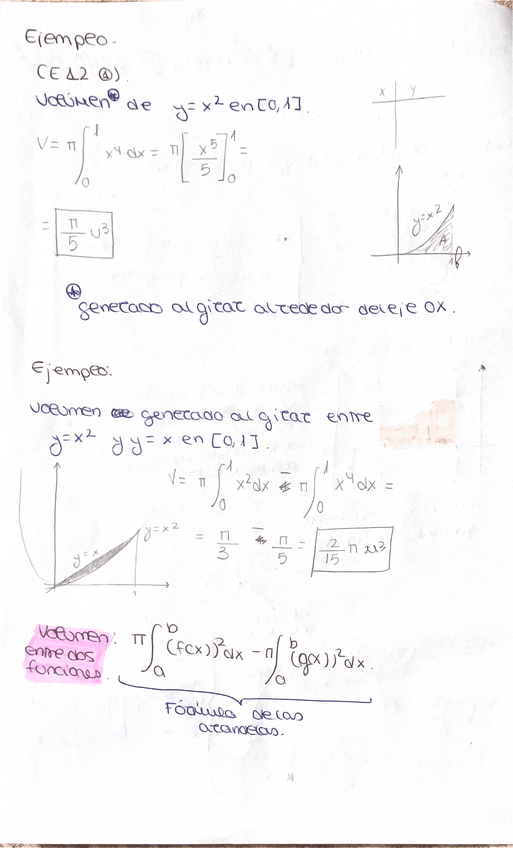 Ejemplo.
(E12 ④).
Volúmen⊛ de y=x² en [0,1].
x y
V = π ∫₀¹ x⁴ dx = π [x⁵/5]₀¹ =
= π/5 u³
y=x²
A
1
⊛ generado al girar alrededor del eje OX.
Ejemplo:
volumen generado al girar entre
y=x² y y=x en [0,1].
V = π ∫₀¹ x² dx - π ∫₀¹ x⁴ dx =
y=x y=x²
1
= π/3 - π/5 = 2/15 π u³
Volumen entre dos funciones: π ∫ₐᵇ (f(x))² dx - π ∫ₐᵇ (g(x))² dx.
Fórmula de las
arandelas.